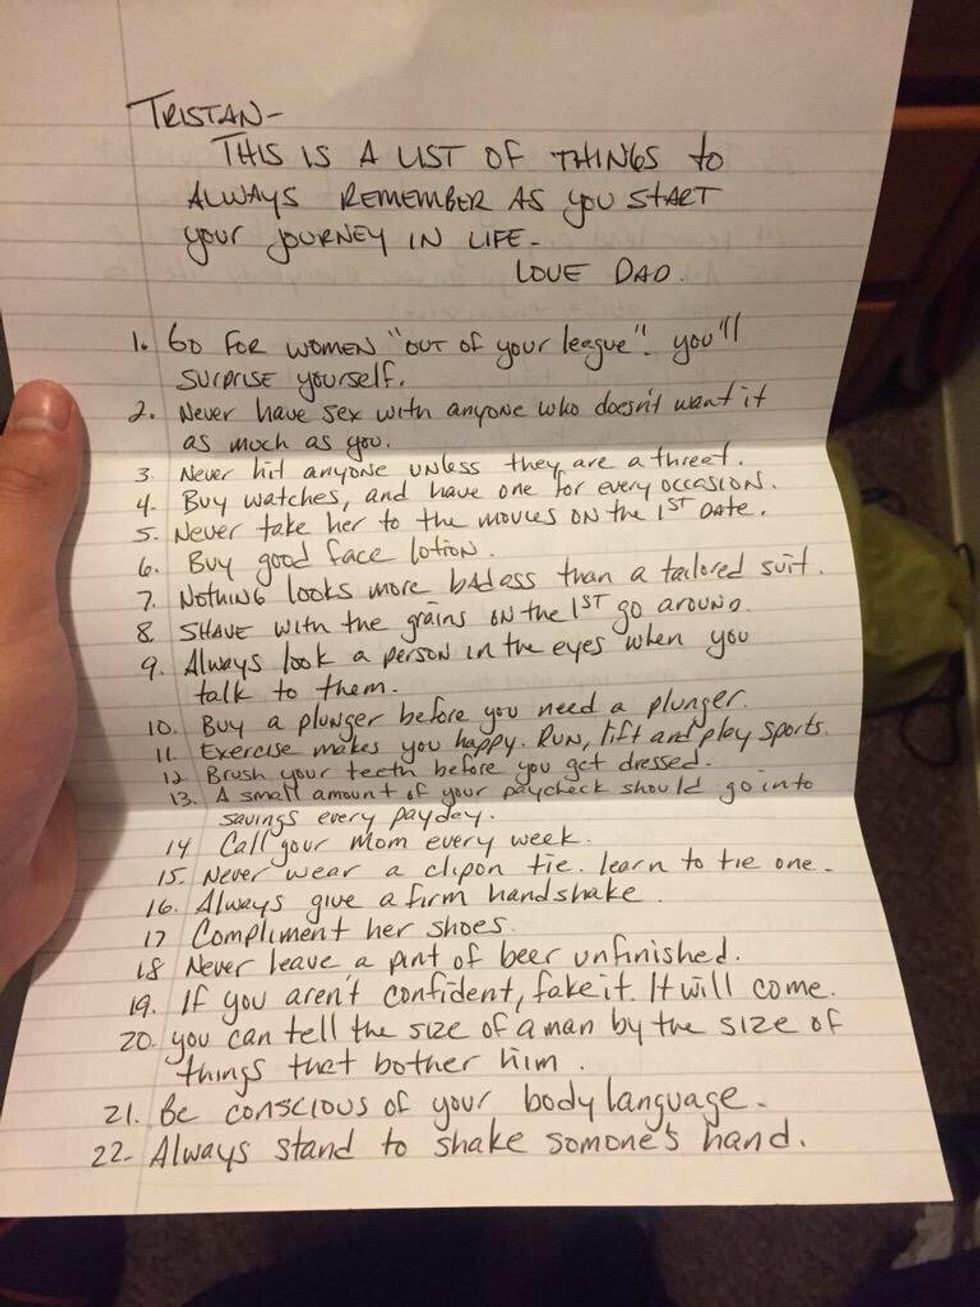 TRISTAN-
THIS IS A LIST OF THINGS to
ALWAYS REMEMBER AS you START
your JOURNEY IN LIFE-
LOVE DAD.
1. Go FOR WOMEN "OUT OF your league". you'll
SURPRISE yourself.
2. Never have sex with anyone who doesn't want it
as much as you.
3. Never hit anyone UNless they are a threat.
4. Buy watches, and have one for every occasion.
5. Never take her to the movies ON the 1ST DAte.
6. Buy good face lotion.
7. NOTHING looks more badass than a tailored suit.
8 SHAVE with the grains ON the 1ST go around.
9. Always look a person in the eyes when you
talk to them.
10. Buy a plunger before you need a plunger.
11. Exercise makes you happy. RUN, lift and play sports.
12 Brush your teeth before you get dressed.
13. A small amount of your paycheck should go into
savings every payday.
14 Call your Mom every week.
15. Never wear a clipon tie. learn to tie one.
16. Always give a firm handshake.
17 Compliment her shoes.
18 Never leave a pint of beer unfinished.
19. If you aren't confident, fake it. It will come.
20. you can tell the size of a man by the size of
things that bother him.
21. Be conscious of your body language.
22- Always stand to shake somone's hand.